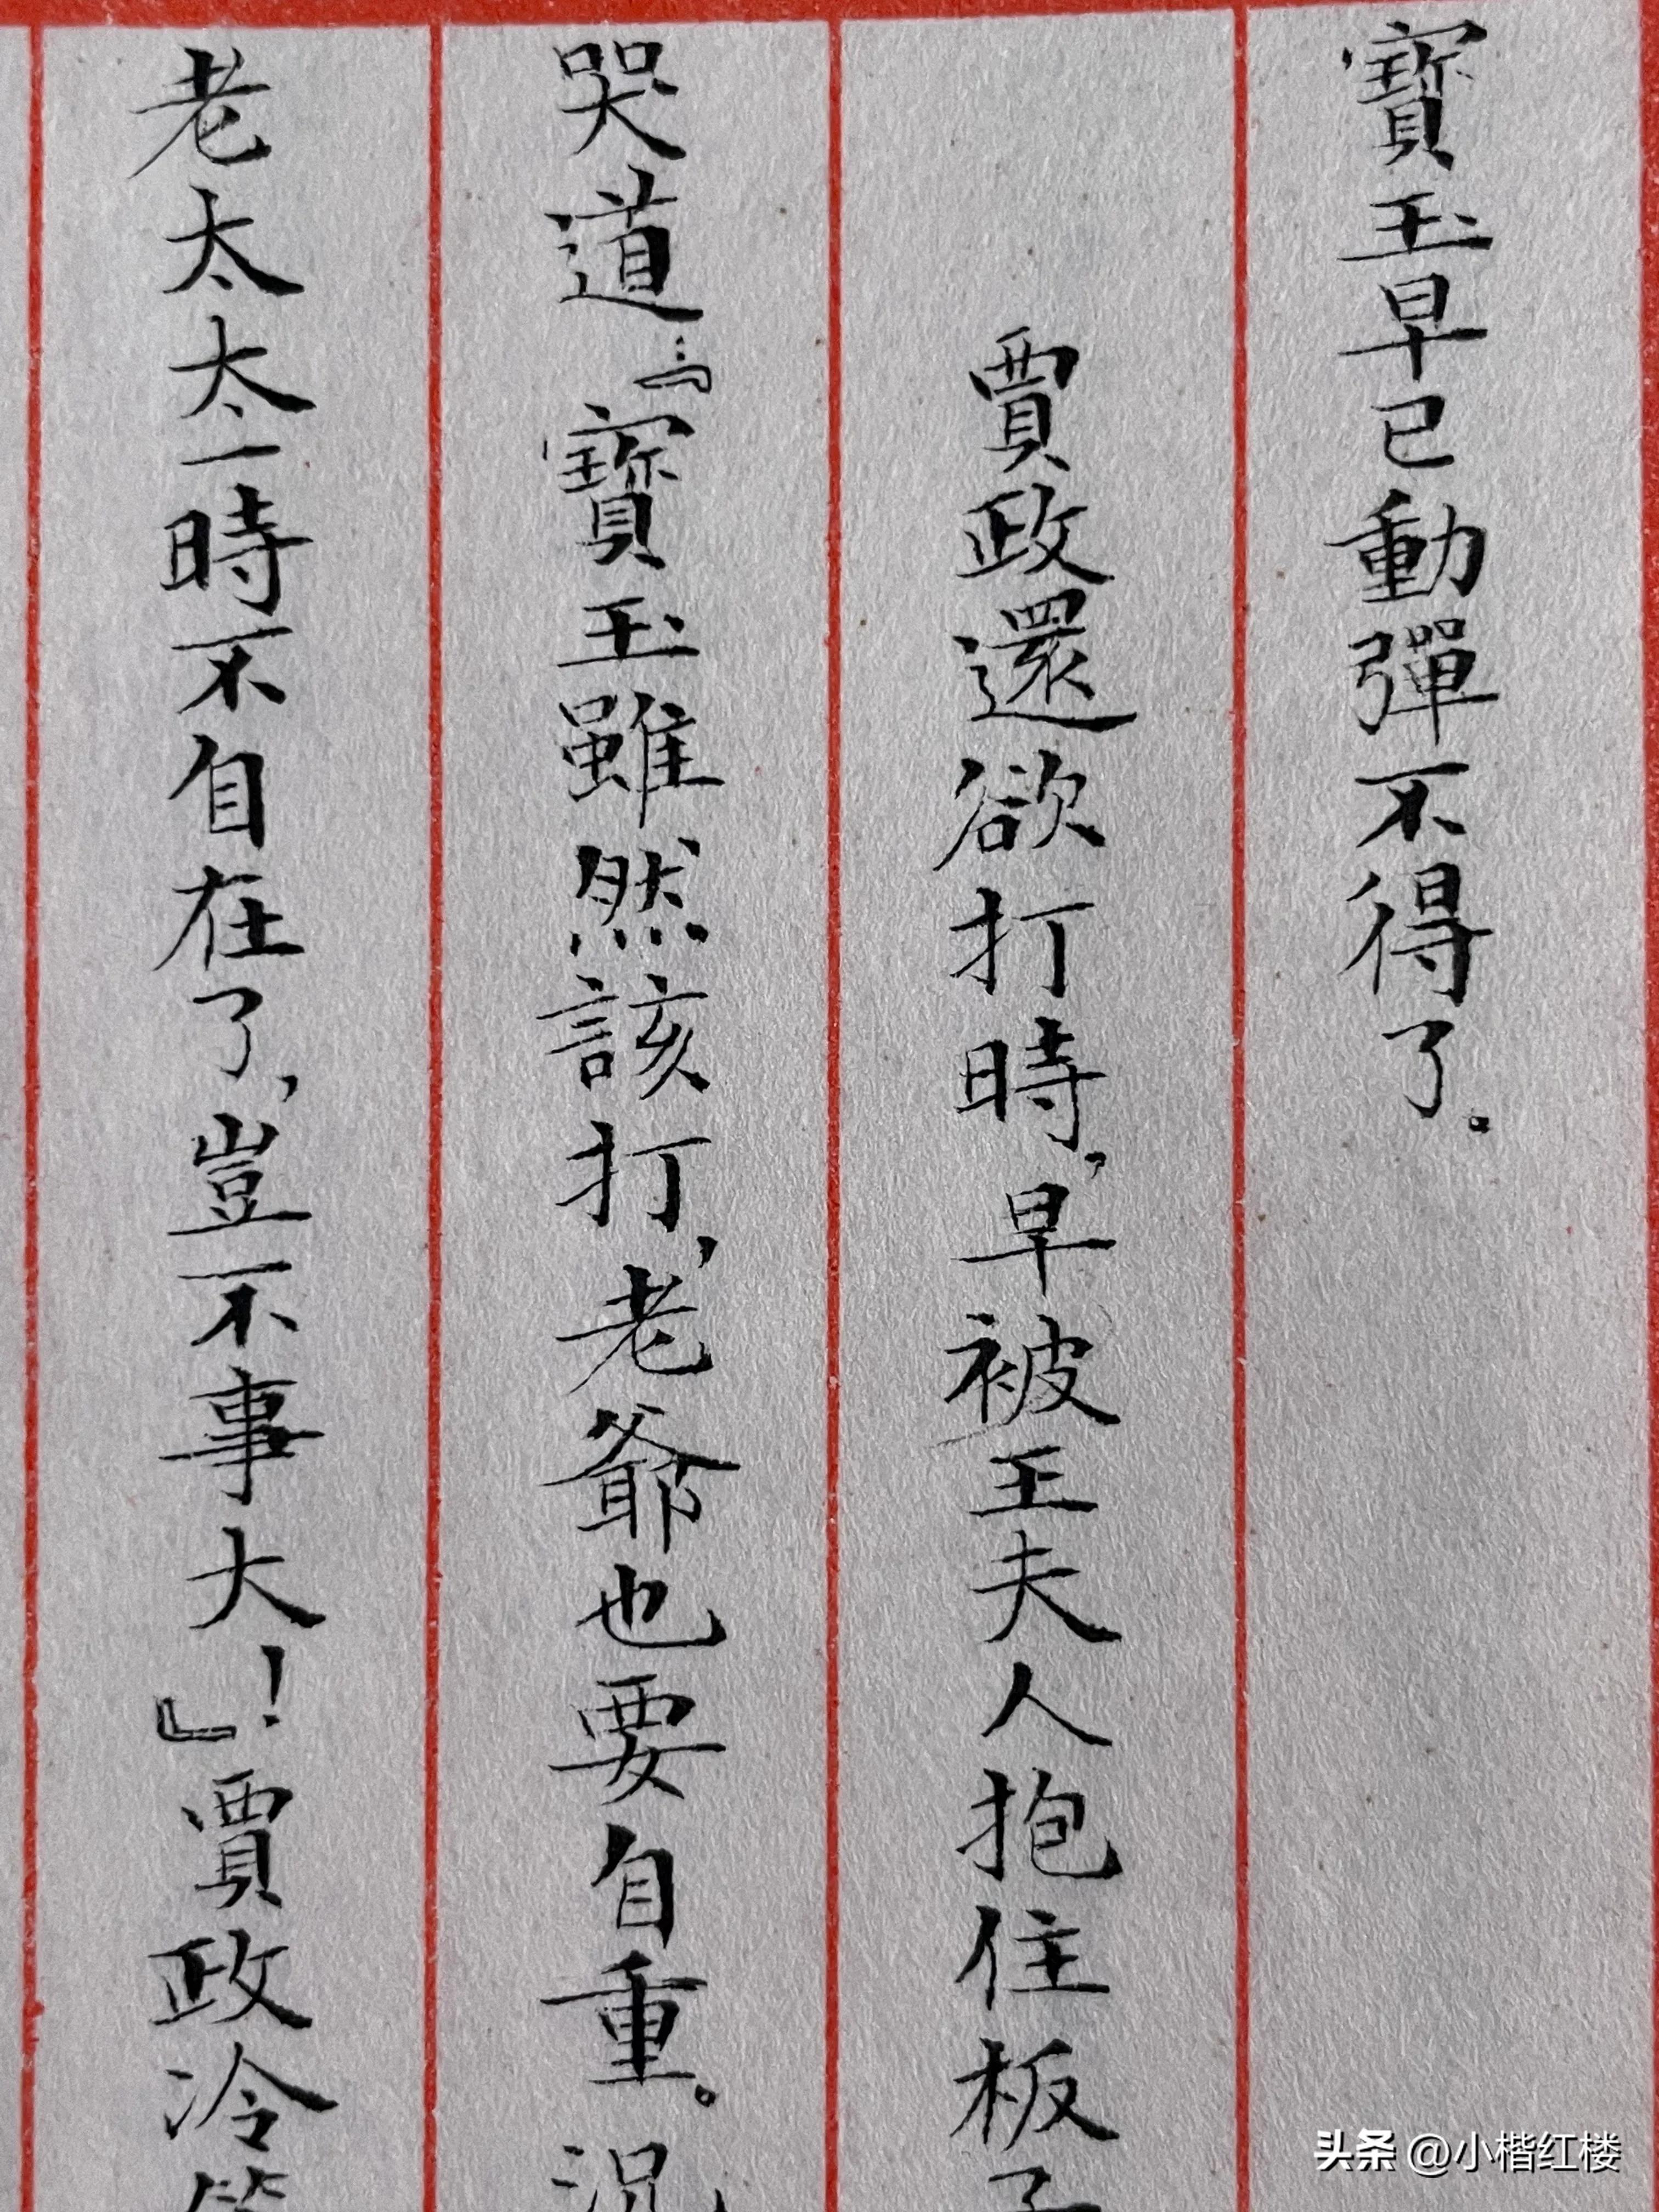 寶玉早已動彈不得了。
賈政還欲打時，早被王夫人抱住板子
哭道：『寶玉雖然該打，老爺也要自重。況
老太太一時不自在了，豈不事大！』賈政冷笑
头条 @小楷红楼